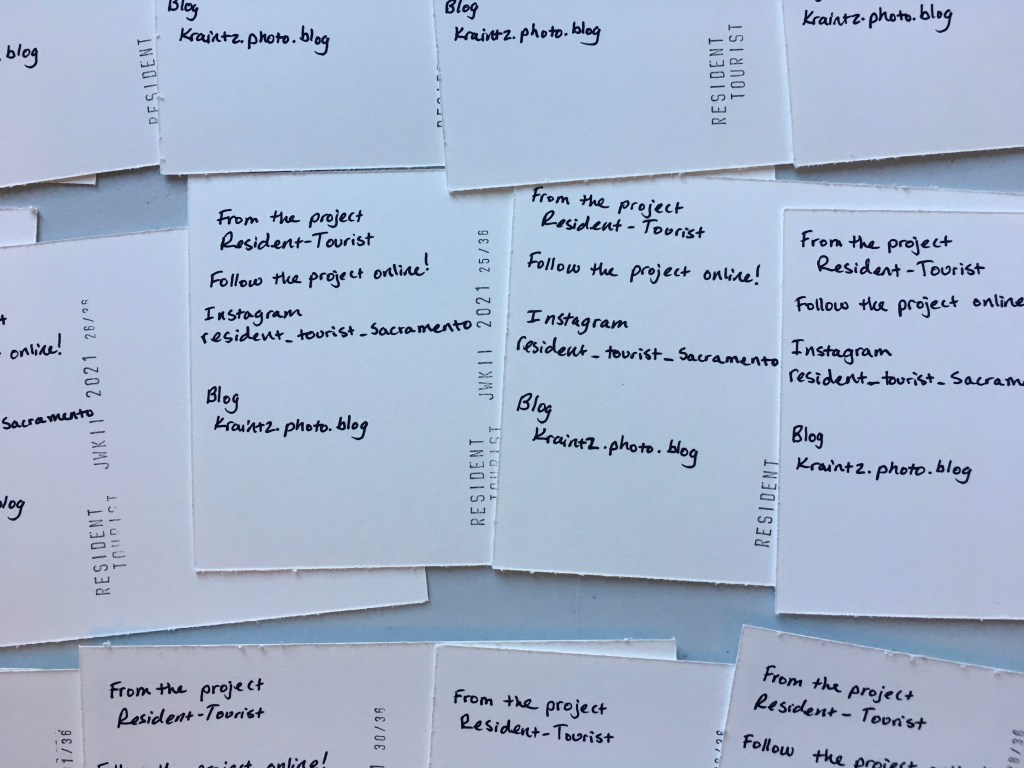 .blog
RESIDENT
Blog
Kraintz.photo.blog
Blog
Kraintz.photo.blog
RESIDENT
TOURIST
Kraintz.photo.blog
online!
Sacramento
blog
RESIDENT
TOURIST
JWKII 2021 26/36
From the project
Resident-Tourist
Follow the project online!
Instagram
resident_tourist_Sacramento
Blog
Kraintz.photo.blog
RESIDENT
TOURIST
JWKII 2021 25/36
From the project
Resident-Tourist
Follow the project online!
Instagram
resident_tourist_Sacramento
Blog
Kraintz.photo.blog
RESIDENT
From the project
Resident-Tourist
Follow the project online
Instagram
resident_tourist_Sacram
Blog
Kraintz.photo.blog
1/36
From the project
Resident-Tourist
Follow the project online!
30/36
From the project
Resident-Tourist
From the project
Resident-Tourist
Follow the project